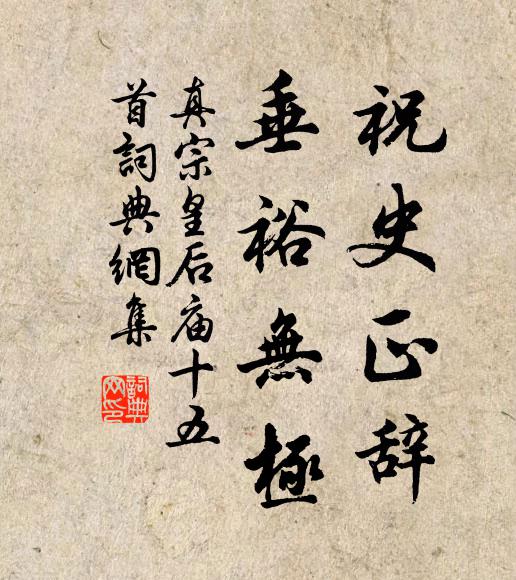 祝史正辞
垂裕無極
真宗皇后庙十五
首詞典網集
詞典
网印